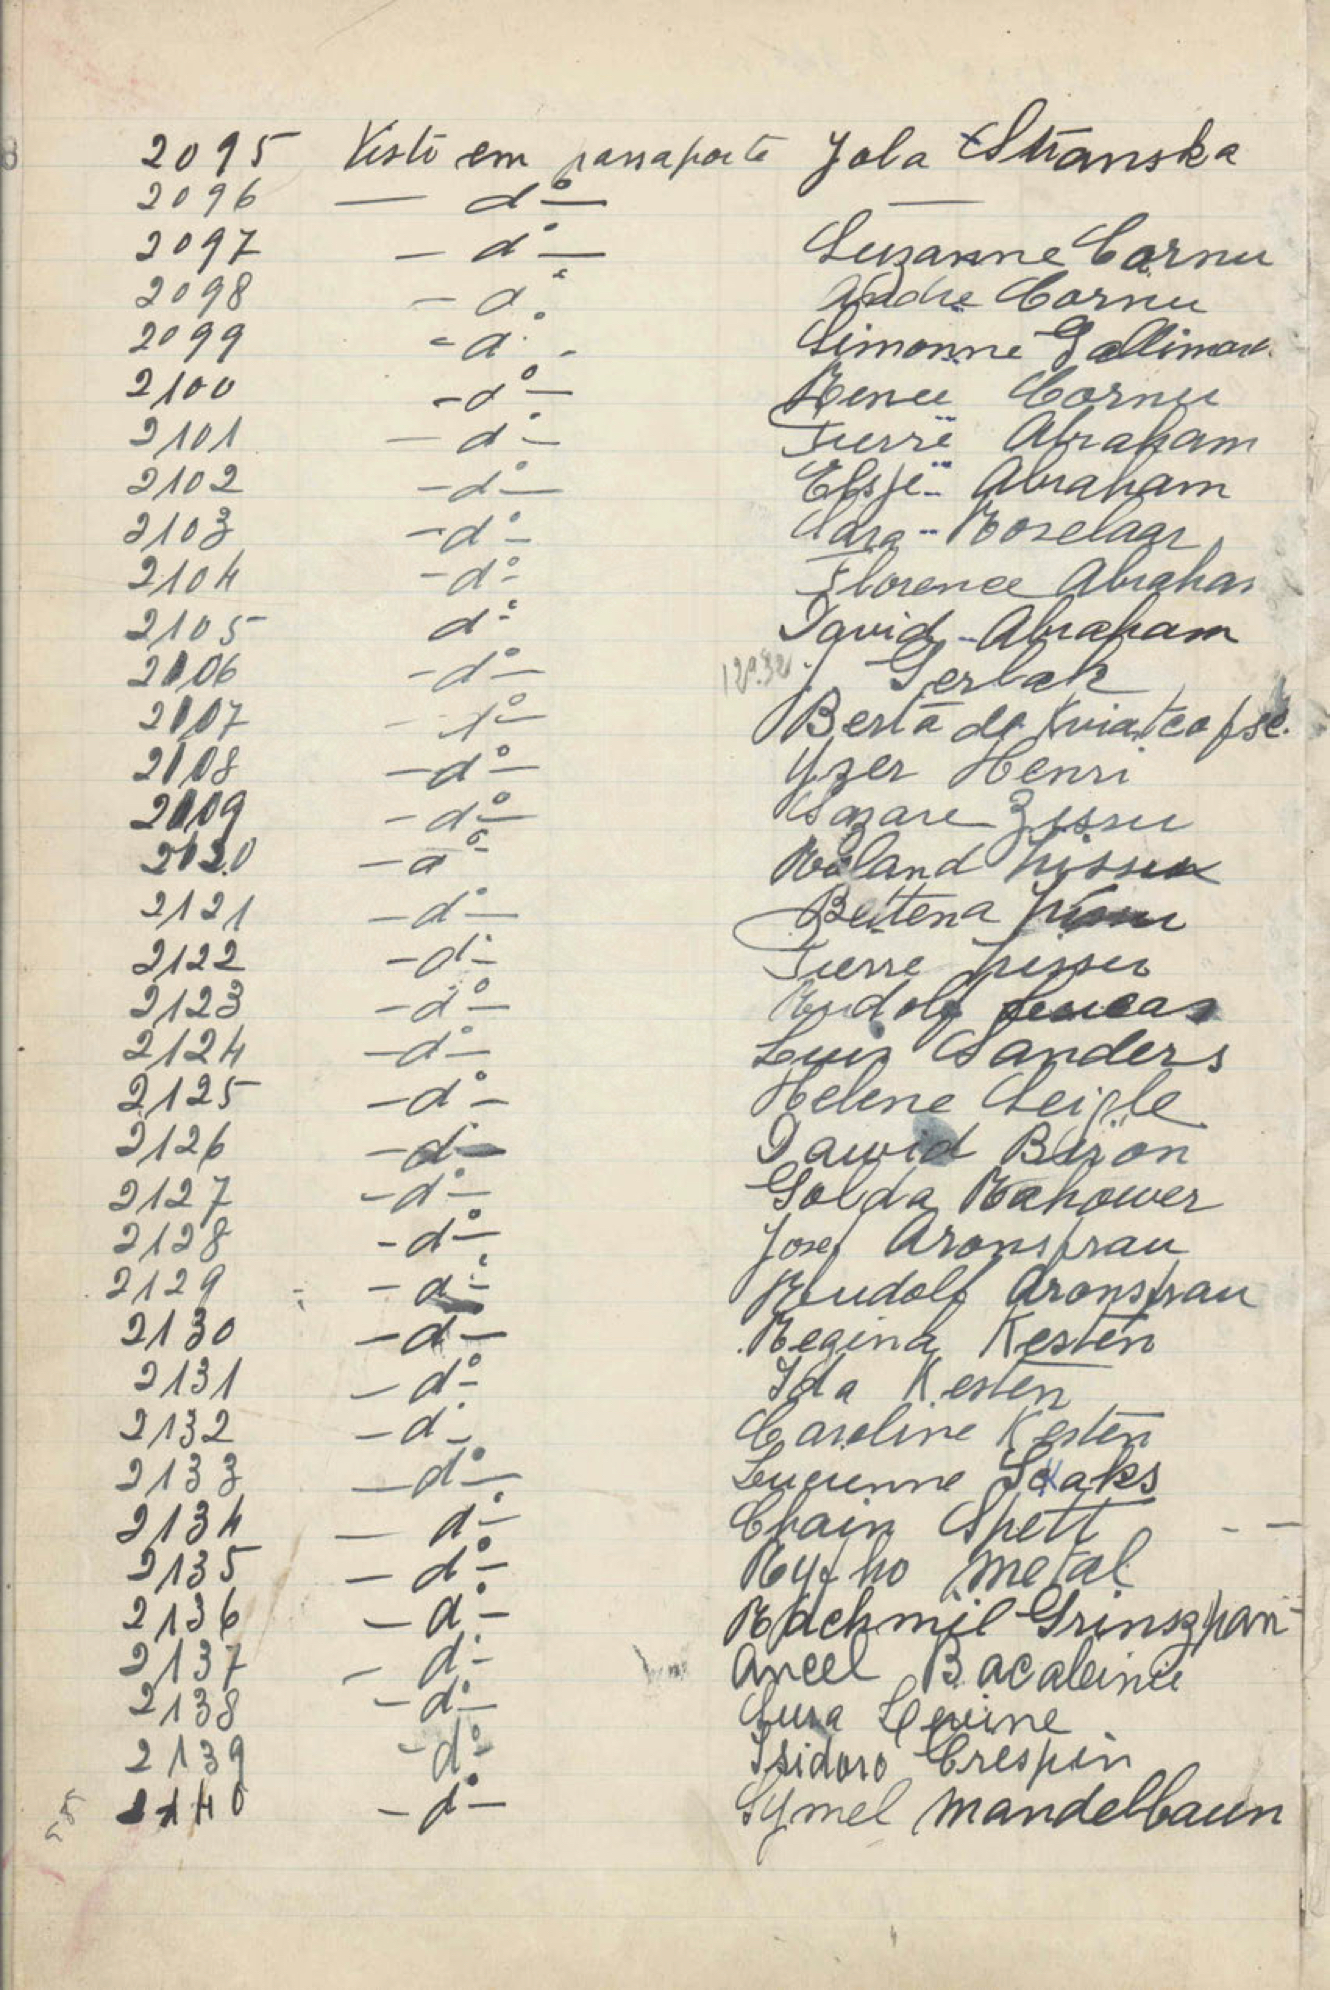 2095 Visto em passaporte Jola Stranska
2096 — dº — —
2097 — dº — Suzanne Cornu
2098 — dº Andre Cornu
2099 - dº - Simonne Gallimard
2100 - dº — Renee Cornu
2101 — dº - Pierre Abraham
2102 - dº — Elsje Abraham
2103 - dº - Clara Roselaar
2104 - dº - Florence Abraham
2105 dº - David Abraham
2106 - dº - Gerbak
2107 - dº - Berta de
2108 - dº - Yzer Henri
2109 - dº - Lazare Zissu
2120 - dº - Roland Zissu
2121 - dº - Bettena Zissu
2122 - dº - Pierre Zissu
2123 - dº - Rudolf Leucas
2124 - dº - Luis Sanders
2125 - dº - Helene Seigle
2126 - dº - Dawid Biron
2127 - dº - Golda Rahower
2128 - dº - Josef Aronsfrau
2129 - dº - Rudolf Aronsfrau
2130 - d - Regina Kesten
2131 - dº - Ida Kesten
2132 - dº - Caroline Kesten
2133 - dº - Lucienne
2134 - dº - Chain Spett - —
2135 - dº - Metal
2136 - dº - Rachmil Grinszpan
2137 - dº - Ancel
2138 - dº - Sura Levine
2139 - dº - Isidoro Crespin
2140 - dº - Symel Mandelbaun